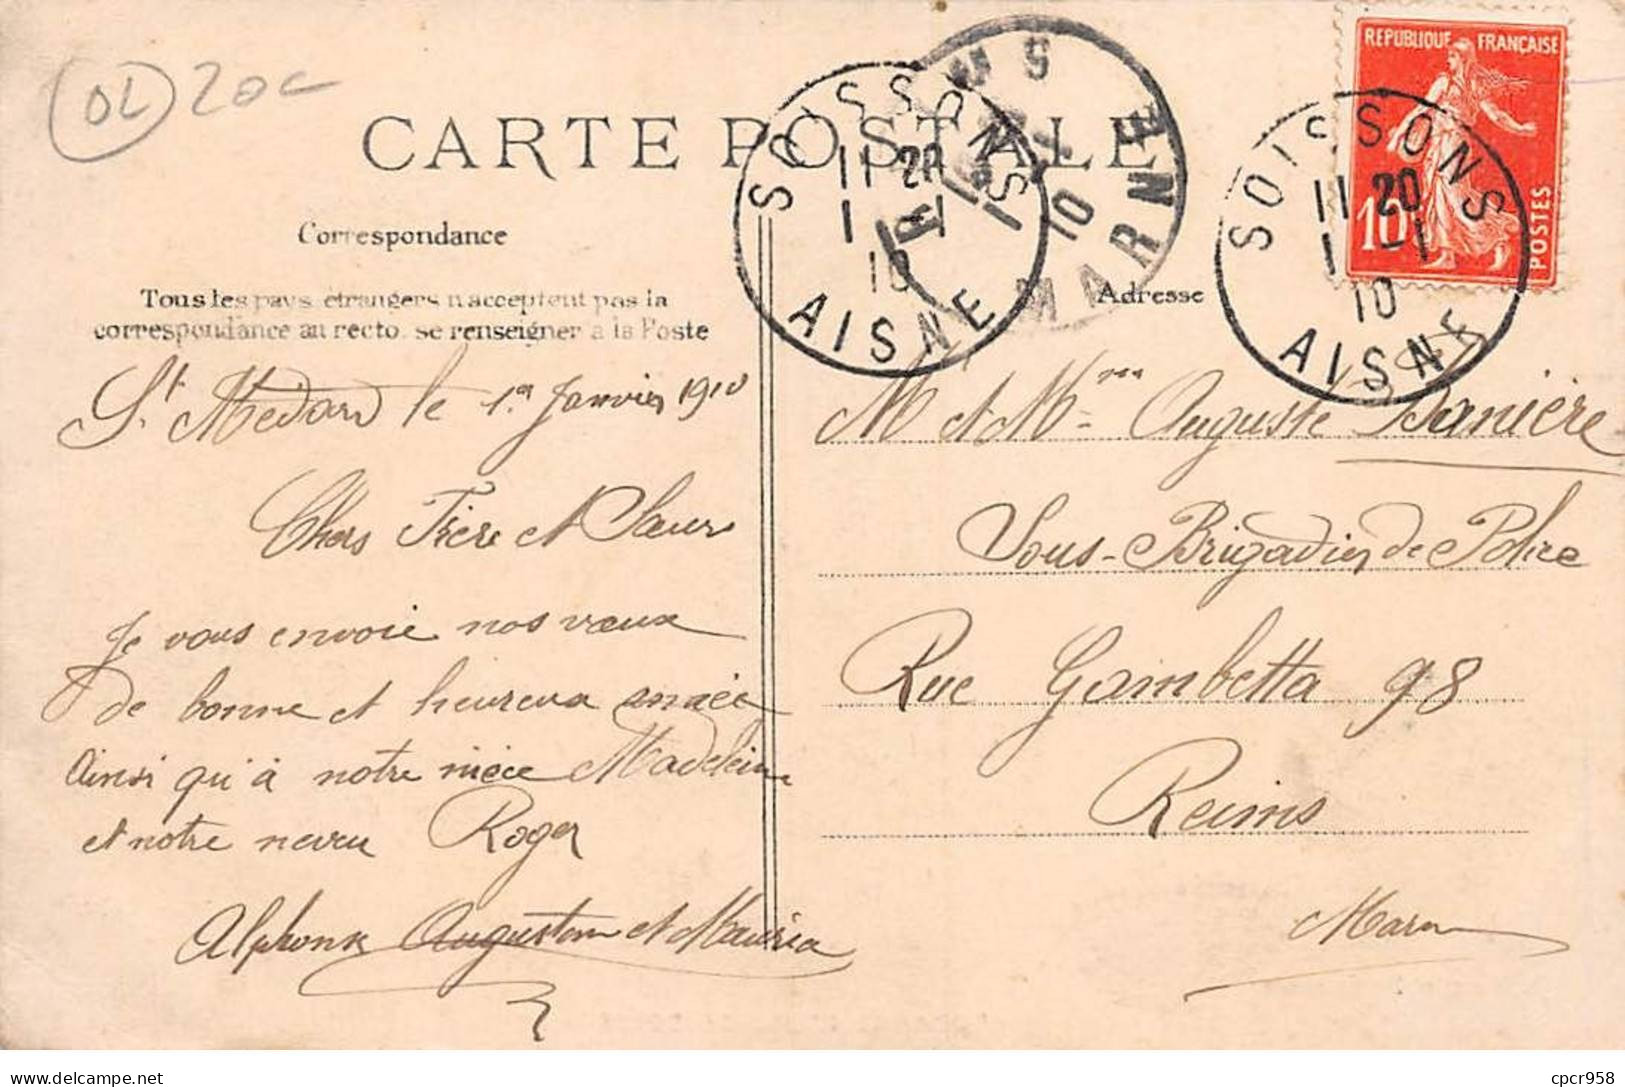 OL 20c
CARTE POSTALE
REPUBLIQUE FRANÇAISE
10
POSTES
SOISSONS
11 20
1 -1
10
AISNE
REIMS
10
MARNE
SOISSONS
11 20
1 -1
10
AISNE
Correspondance
Tous les pays étrangers n'acceptent pas la
correspondance au recto. se renseigner à la Poste
St Medard le 1er Janvier 1910
Chers Frère et Sœur
Je vous envoie nos vœux
de bonne et heureux année
Ainsi qu'à notre nièce Madeleine
et notre neveu Roger
Alphonse Augustine et Maurice
Adresse
M et Mme Auguste
Sous-Brigadier de Police
Rue Gambetta 98
Reims
Marne
delcampe.net
cpcr958